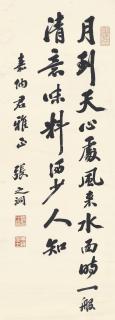 月到天心處風来水面時一般
清意味料得少人知
嘉納君雅正
張之洞